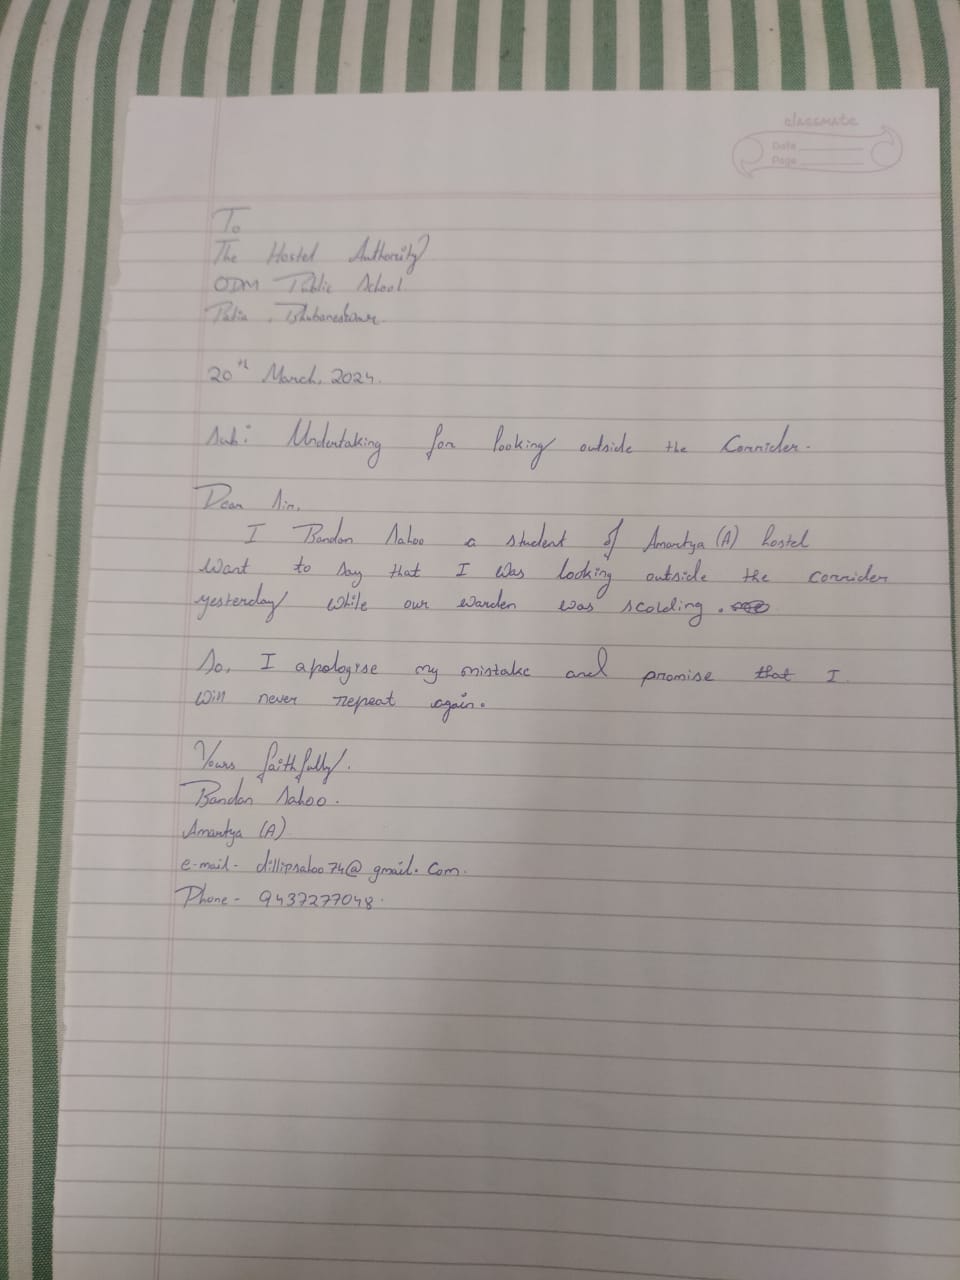 classmate
Date
Page
To
The Hostel Authority
ODM Public School
Patia, Bhubaneshwar
20th March, 2024.
Sub: Undertaking for looking outside the Corrider.
Dear Sir,
I Bandan Sahoo a student of Amartya (A) hostel
want to say that I was looking outside the corrider
yesterday while our warden was scolding.
So, I apologise my mistake and promise that I
will never repeat again.
Yours faithfully.
Bandan Sahoo.
Amartya (A)
e-mail - dillipsahoo74@gmail.com.
Phone - 9437277048.